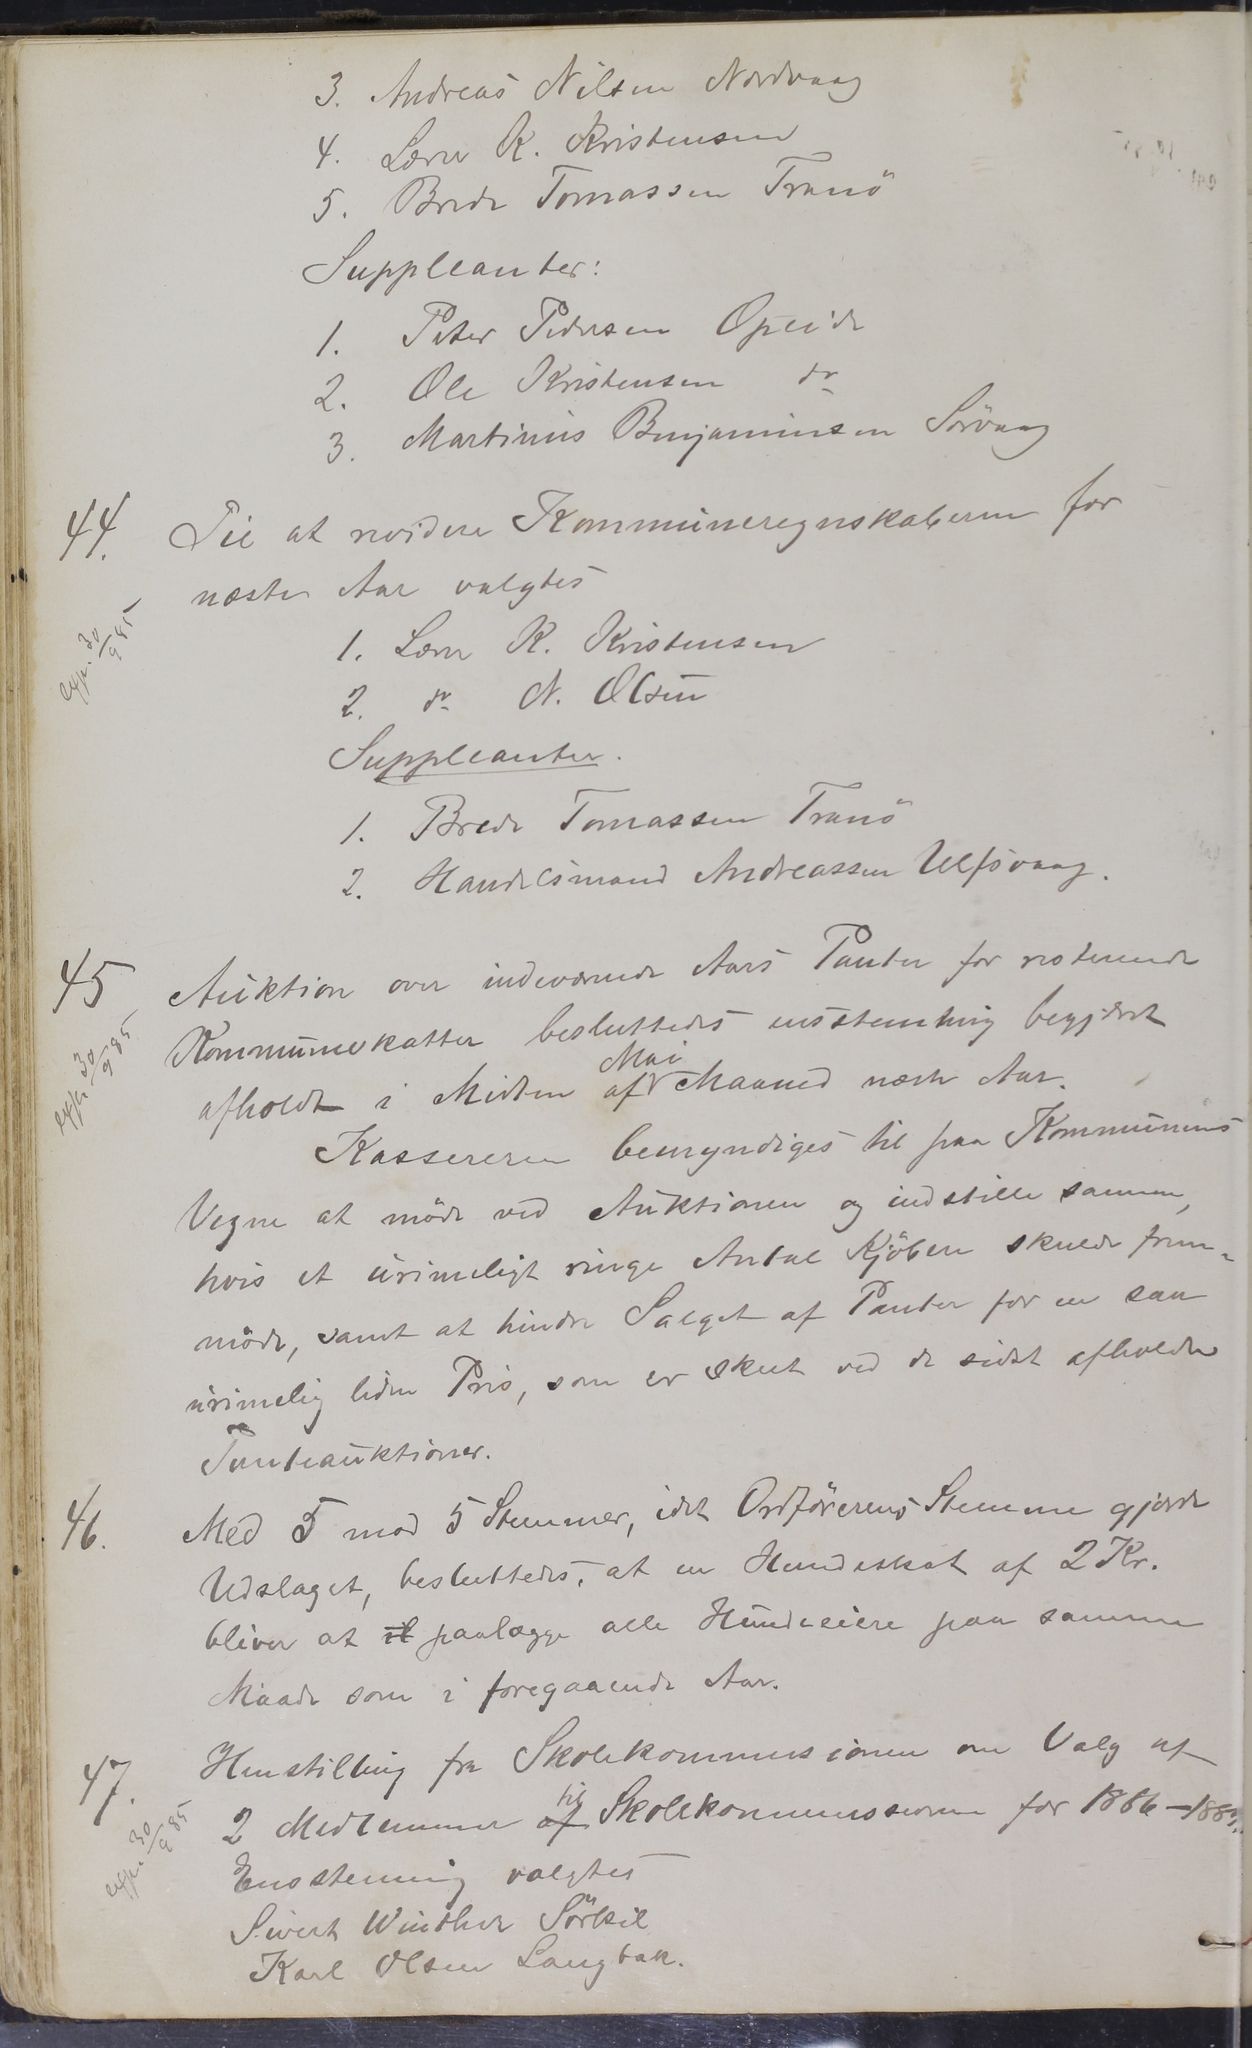 3. Andreas Nilsen Nordvaag
4. Lærer K. Kristensen
5. Brede Tomassen Tranö
Suppleanter:
1. Peter Pedersen Opeide
2. Ole Kristensen do
3. Martinus Benjaminsen Sörvaag
44. Til at revidere Kommuneregnskaberne for
næste Aar valgtes
exp. 30/9 85
1. Lærer K. Kristensen
2. do N. Olsen
Suppleanter.
1. Brede Tomassen Tranö
2. Handelsmand Andreassen Ulfsvaag.
45 Auktion over indeværende Aars Panter for resterende
Kommuneskatter besluttedes enstemmig begjært
exp. 30/9 85
afholdt i Midten af Mai Maaned næste Aar.
Kassereren bemyndiges til paa Kommunens
Vegne at möde ved Auktionen og indstille samme,
hvis et urimeligt ringe Antal Kjöbere skulde frem-
möde, samt at hindre Salget af Panter for en saa
urimelig liden Pris, som er skeet ved de sidst afholdte
Panteauktioner.
46. Med 5 mod 5 Stemmer, idet Ordförerens Stemme gjorde
Udslaget, besluttedes, at en Hundeskat af 2 Kr.
bliver at paalægge alle Hundeeiere paa samme
Maade som i foregaaende Aar.
47. Henstilling fra Skolekommissionen om Valg af
2 Medlemmer af til Skolekommissionen for 1886-188
exp. 30/9 85
Enstemmig valgtes
Sivert Winther Sörkil
Karl Olsen Langbak.